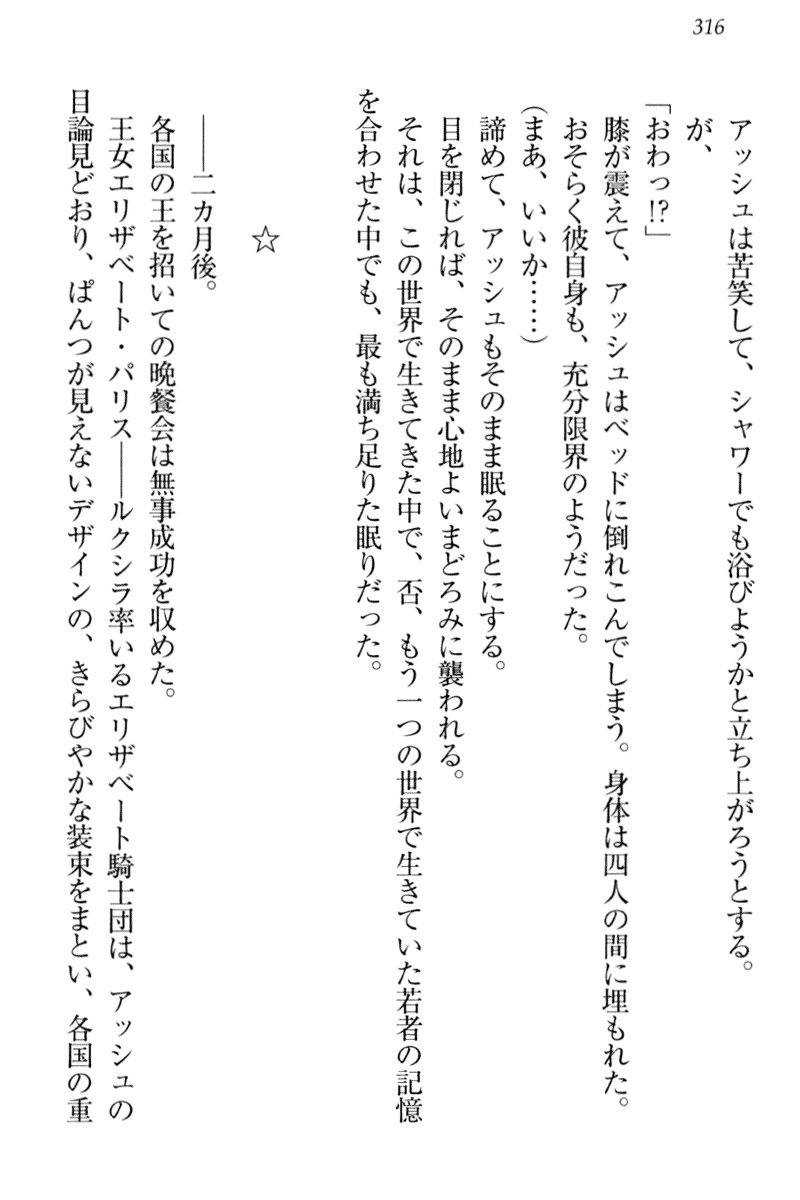 316
アッシュは苦笑して、シャワーでも浴びようかと立ち上がろうとする。
が、
「おわっ!?」
膝が震えて、アッシュはベッドに倒れこんでしまう。身体は四人の間に埋もれた。
おそらく彼自身も、充分限界のようだった。
(まあ、いいか……)
諦めて、アッシュもそのまま眠ることにする。
目を閉じれば、そのまま心地よいまどろみに襲われる。
それは、この世界で生きてきた中で、否、もう一つの世界で生きていた若者の記憶
を合わせた中でも、最も満ち足りた眠りだった。
☆
――二カ月後。
各国の王を招いての晩餐会は無事成功を収めた。
王女エリザベート・パリス――ルクシラ率いるエリザベート騎士団は、アッシュの
目論見どおり、ぱんつが見えないデザインの、きらびやかな装束をまとい、各国の重